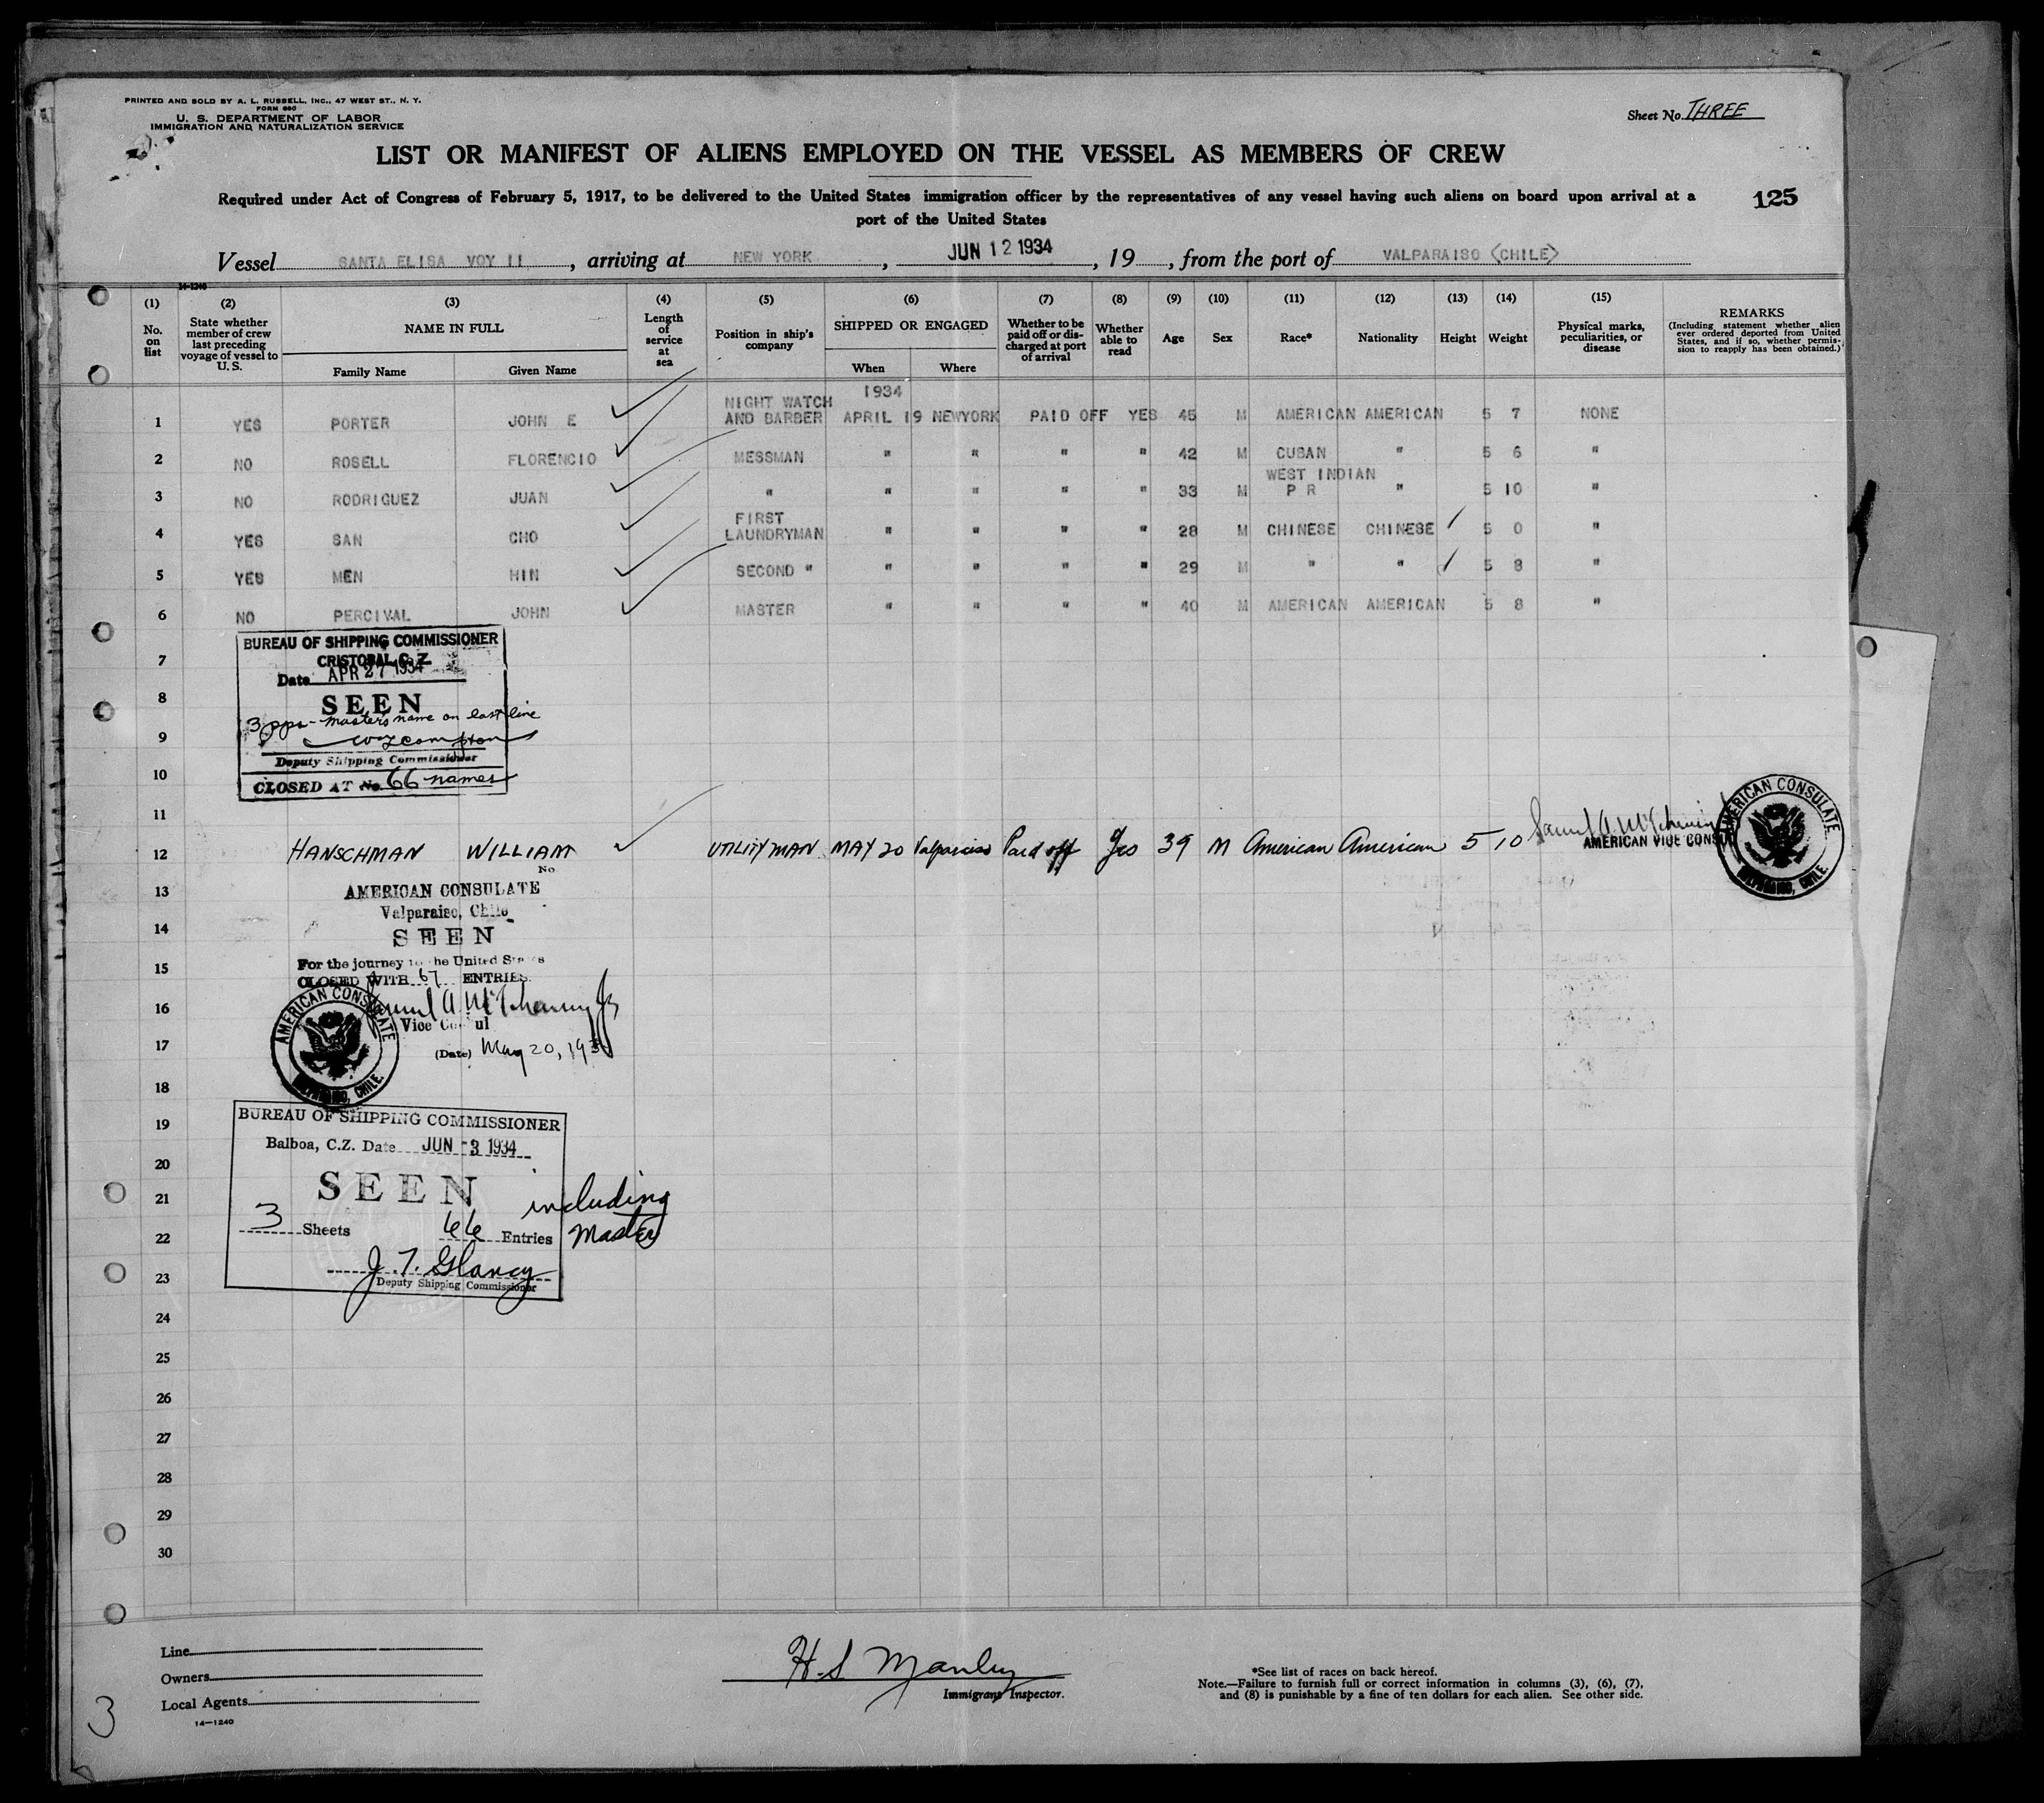 PRINTED AND SOLD BY A. L. RUSSELL, INC., 47 WEST ST., N. Y.
FORM 680
U. S. DEPARTMENT OF LABOR
IMMIGRATION AND NATURALIZATION SERVICE
Sheet No. THREE
LIST OR MANIFEST OF ALIENS EMPLOYED ON THE VESSEL AS MEMBERS OF CREW
Required under Act of Congress of February 5, 1917, to be delivered to the United States immigration officer by the representatives of any vessel having such aliens on board upon arrival at a
port of the United States
125
Vessel SANTA ELISA VOY 11, arriving at NEW YORK, JUN 12 1934, 19 , from the port of VALPARAISO (CHILE)
14-1240
(1) No. on list
(2) State whether member of crew last preceding voyage of vessel to U. S.
(3) NAME IN FULL
Family Name Given Name
(4) Length of service at sea
(5) Position in ship's company
(6) SHIPPED OR ENGAGED
When Where
(7) Whether to be paid off or discharged at port of arrival
(8) Whether able to read
(9) Age
(10) Sex
(11) Race*
(12) Nationality
(13) Height
(14) Weight
(15) Physical marks, peculiarities, or disease
REMARKS
(Including statement whether alien ever ordered deported from United States, and if so, whether permission to reapply has been obtained.)
1934
1 YES PORTER JOHN E NIGHT WATCH AND BARBER APRIL 19 NEWYORK PAID OFF YES 45 M AMERICAN AMERICAN 5 7 NONE
2 NO ROSELL FLORENCIO MESSMAN " " " " 42 M CUBAN " 5 6 "
3 NO RODRIGUEZ JUAN " " " " " 33 M WEST INDIAN P R " 5 10 "
4 YES SAN CHO FIRST LAUNDRYMAN " " " " 28 M CHINESE CHINESE 5 0 "
5 YES MEN HIN SECOND " " " " " 29 M " " 5 8 "
6 NO PERCIVAL JOHN MASTER " " " " 40 M AMERICAN AMERICAN 5 8 "
BUREAU OF SHIPPING COMMISSIONER
CRISTOBAL C. Z.
7
Date APR 27 1934
8
SEEN
3 pps - masters name on last line
9
Compton
Deputy Shipping Commissioner
10
CLOSED AT No. 66 names
11
12 HANSCHMAN WILLIAM UTILITYMAN MAY 20 Valparaiso Paid off Yes 39 M American American 5 10
AMERICAN VICE CONSUL
AMERICAN CONSULATE
VALPARAISO, CHILE.
No.
13
AMERICAN CONSULATE
Valparaiso, Chile
14
SEEN
15
For the journey to the United States
CLOSED WITH 67 ENTRIES.
16
AMERICAN CONSULATE
VALPARAISO, CHILE.
Vice Consul
17
(Date) May 20, 193
18
BUREAU OF SHIPPING COMMISSIONER
19
Balboa, C.Z. Date JUN -3 1934
20
SEEN
21
including
3 Sheets 66 Entries Master
22
J. T. Glancy
23
Deputy Shipping Commissioner
24
25
26
27
28
29
30
Line
Owners
Local Agents
14-1240
3
H. S Manley
Immigrant Inspector.
*See list of races on back hereof.
Note.—Failure to furnish full or correct information in columns (3), (6), (7),
and (8) is punishable by a fine of ten dollars for each alien. See other side.